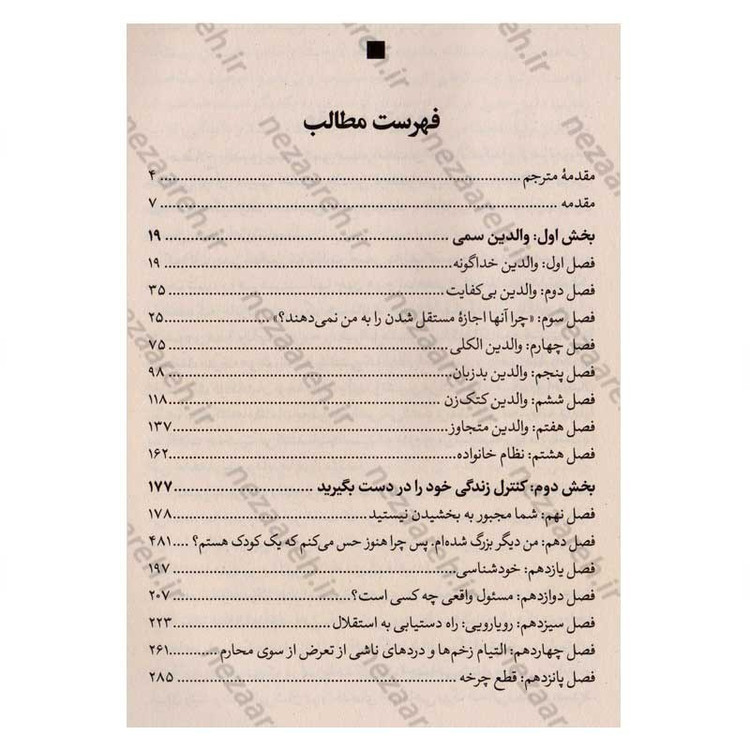 فهرست مطالب
مقدمهٔ مترجم ........ ۴
مقدمه ........ ۷
بخش اول: والدین سمی ........ ۱۹
فصل اول: والدین خداگونه ........ ۱۹
فصل دوم: والدین بی‌کفایت ........ ۳۵
فصل سوم: «چرا آنها اجازهٔ مستقل شدن را به من نمی‌دهند؟» ........ ۲۵
فصل چهارم: والدین الکلی ........ ۷۵
فصل پنجم: والدین بدزبان ........ ۹۸
فصل ششم: والدین کتک‌زن ........ ۱۱۸
فصل هفتم: والدین متجاوز ........ ۱۳۷
فصل هشتم: نظام خانواده ........ ۱۶۲
بخش دوم: کنترل زندگی خود را در دست بگیرید ........ ۱۷۷
فصل نهم: شما مجبور به بخشیدن نیستید ........ ۱۷۸
فصل دهم: من دیگر بزرگ شده‌ام. پس چرا هنوز حس می‌کنم که یک کودک هستم؟ .... ۴۸۱
فصل یازدهم: خودشناسی ........ ۱۹۷
فصل دوازدهم: مسئول واقعی چه کسی است؟ ........ ۲۰۷
فصل سیزدهم: رویارویی: راه دستیابی به استقلال ........ ۲۲۳
فصل چهاردهم: التیام زخم‌ها و دردهای ناشی از تعرض از سوی محارم ........ ۲۶۱
فصل پانزدهم: قطع چرخه ........ ۲۸۵
nezaareh.ir